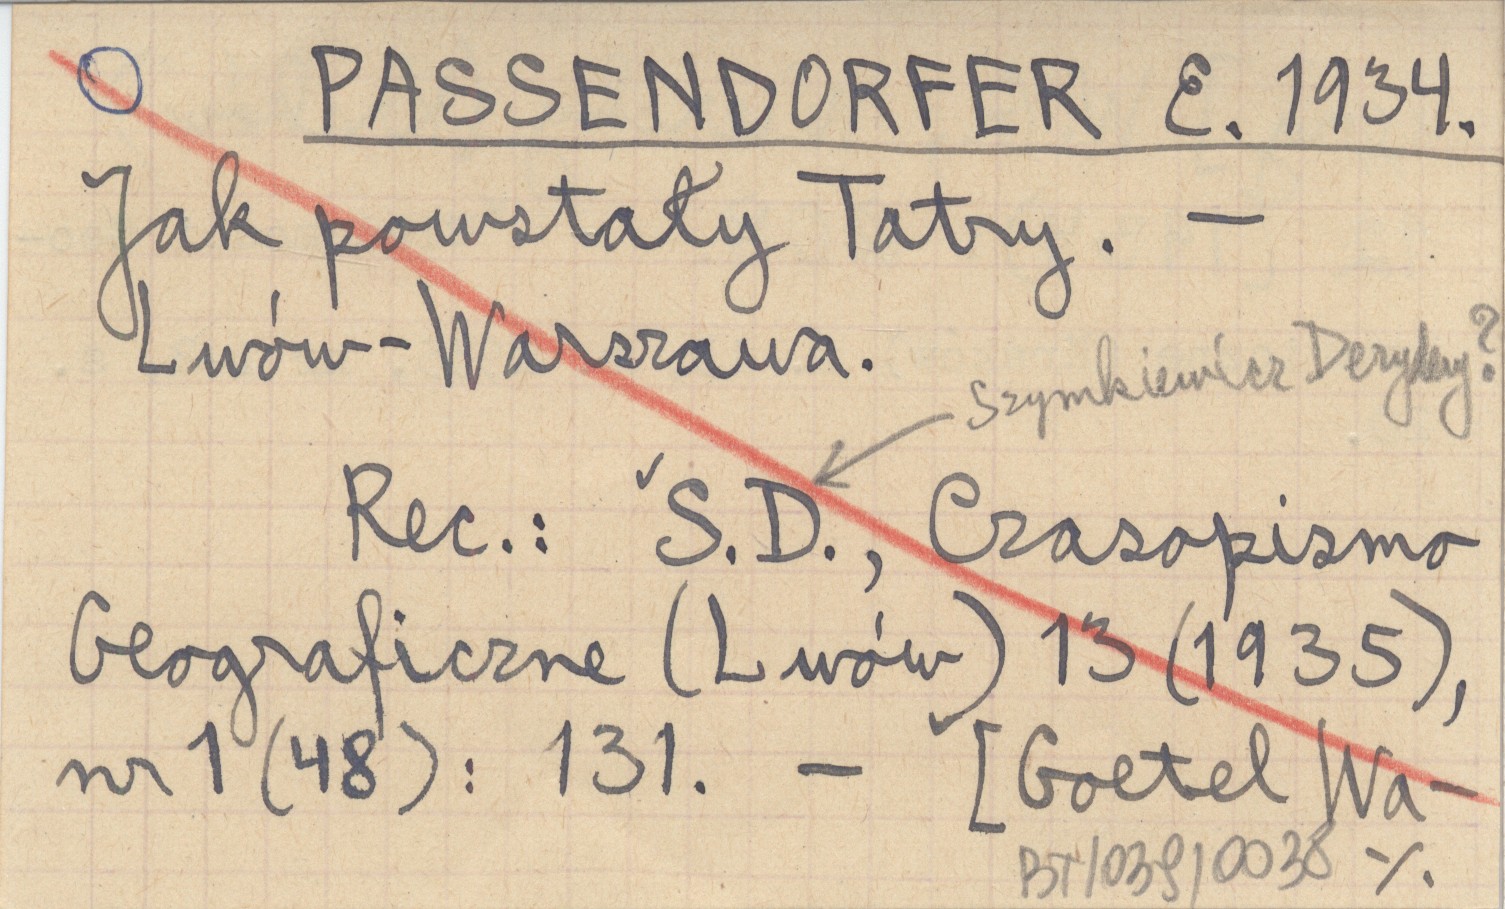 PASSENDORFER E. 1934.
Jak powstały Tatry. —
Lwów-Warszawa.
Szymkiewicz Dezydery?
Rec.: S.D., Czasopismo
Geograficzne (Lwów) 13 (1935),
nr 1 (48): 131. — [Goetel Wa-
BT/039/0038 ·/.